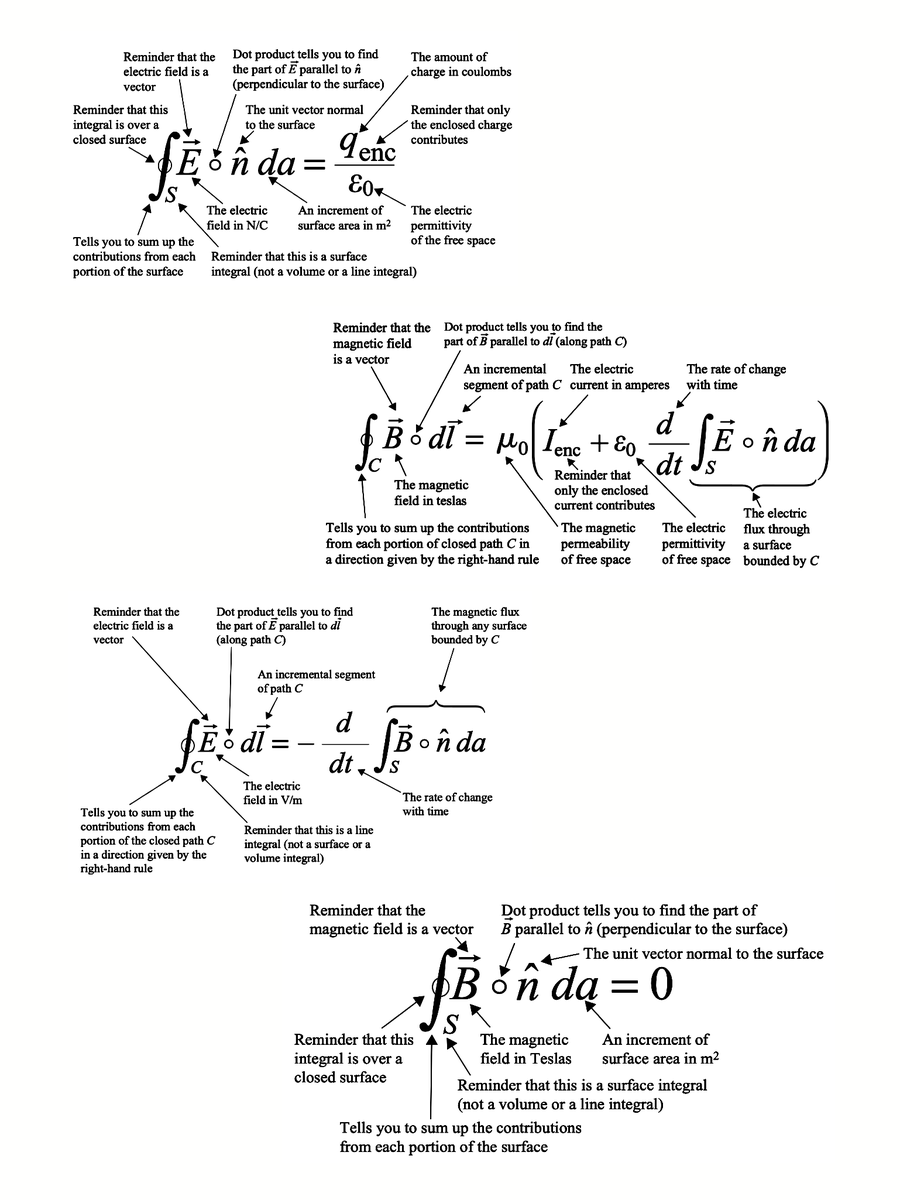 Reminder that the
electric field is a
vector
Dot product tells you to find
the part of E⃗ parallel to n̂
(perpendicular to the surface)
The amount of
charge in coulombs
Reminder that this
integral is over a
closed surface
The unit vector normal
to the surface
Reminder that only
the enclosed charge
contributes
∮_S E⃗ ∘ n̂ da = q_enc / ε₀
The electric
field in N/C
An increment of
surface area in m²
The electric
permittivity
of the free space
Tells you to sum up the
contributions from each
portion of the surface
Reminder that this is a surface
integral (not a volume or a line integral)
Reminder that the
magnetic field
is a vector
Dot product tells you to find the
part of B⃗ parallel to dl⃗ (along path C)
An incremental
segment of path C
The electric
current in amperes
The rate of change
with time
∮_C B⃗ ∘ dl⃗ = μ₀ ( I_enc + ε₀ d/dt ∫_S E⃗ ∘ n̂ da )
The magnetic
field in teslas
Reminder that
only the enclosed
current contributes
Tells you to sum up the contributions
from each portion of closed path C in
a direction given by the right-hand rule
The magnetic
permeability
of free space
The electric
permittivity
of free space
The electric
flux through
a surface
bounded by C
Reminder that the
electric field is a
vector
Dot product tells you to find
the part of E⃗ parallel to dl⃗
(along path C)
The magnetic flux
through any surface
bounded by C
An incremental segment
of path C
∮_C E⃗ ∘ dl⃗ = − d/dt ∫_S B⃗ ∘ n̂ da
The electric
field in V/m
The rate of change
with time
Tells you to sum up the
contributions from each
portion of the closed path C
in a direction given by the
right-hand rule
Reminder that this is a line
integral (not a surface or a
volume integral)
Reminder that the
magnetic field is a vector
Dot product tells you to find the part of
B⃗ parallel to n̂ (perpendicular to the surface)
The unit vector normal to the surface
∮_S B⃗ ∘ n̂ da = 0
Reminder that this
integral is over a
closed surface
The magnetic
field in Teslas
An increment of
surface area in m²
Reminder that this is a surface integral
(not a volume or a line integral)
Tells you to sum up the contributions
from each portion of the surface